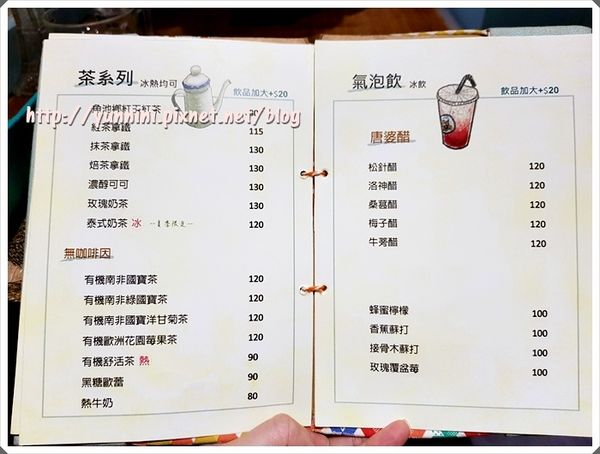 茶系列 冰熱均可 飲品加大+$20
魚池鄉紅玉紅茶
http://yunnini.pixnet.net/blog
紅茶拿鐵 115
抹茶拿鐵 130
焙茶拿鐵 130
濃醇可可 130
玫瑰奶茶 130
泰式奶茶 冰 120
無咖啡因
有機南非國寶茶 120
有機南非綠國寶茶 120
有機南非國寶洋甘菊茶 120
有機歐洲花園莓果茶 120
有機舒活茶 熱 90
黑糖歐蕾 90
熱牛奶 80
氣泡飲 冰飲 飲品加大+$20
唐婆醋
松針醋 120
洛神醋 120
桑葚醋 120
梅子醋 120
牛蒡醋 120
蜂蜜檸檬 100
香蕉蘇打 100
接骨木蘇打 100
玫瑰覆盆莓 100